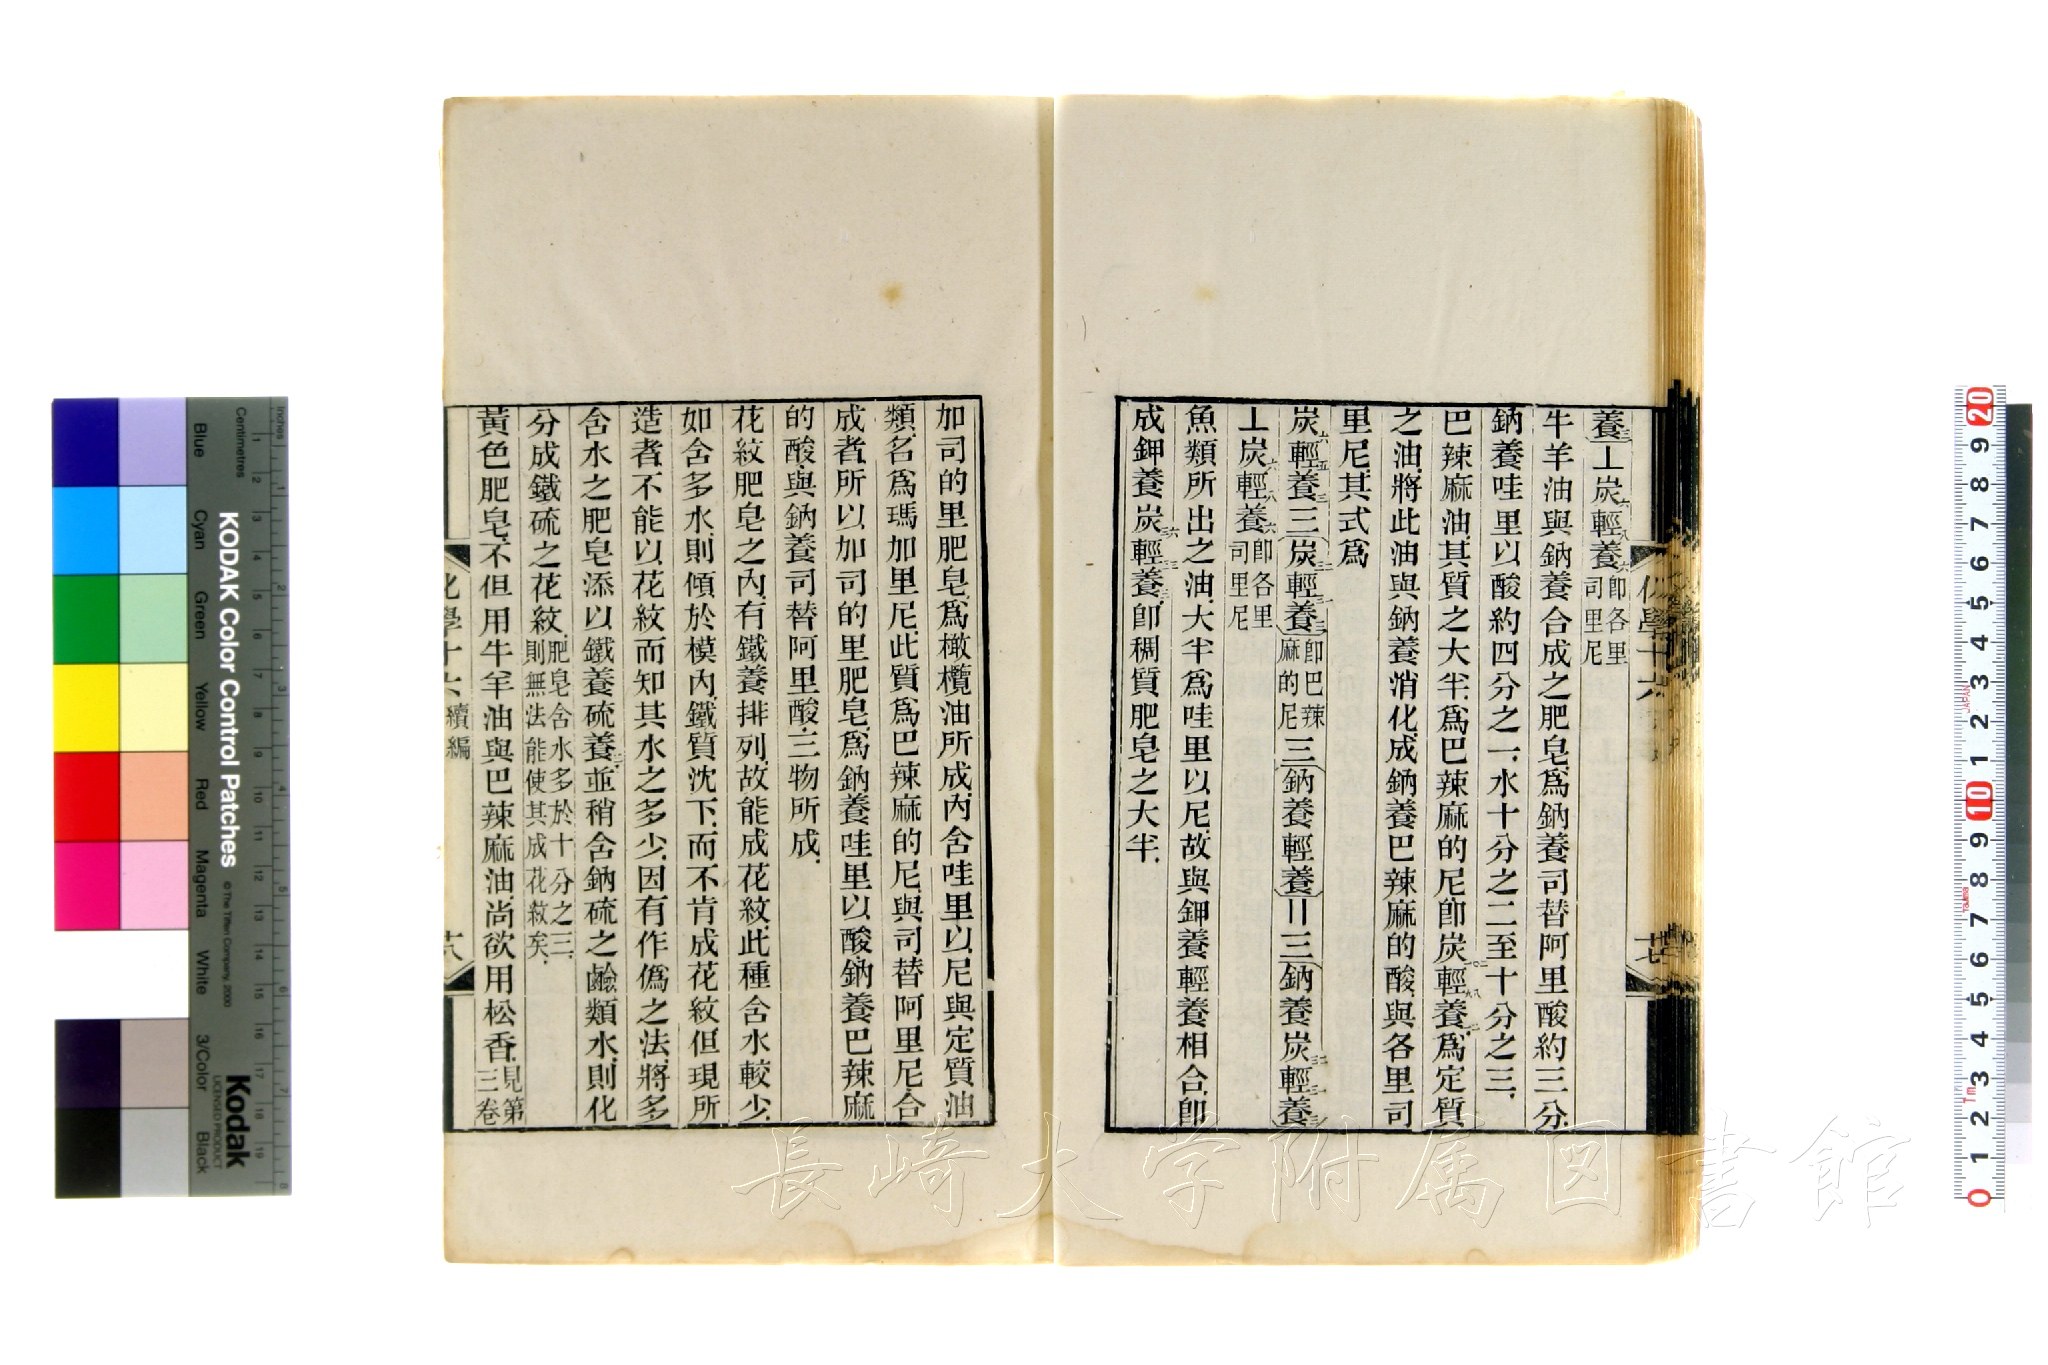 養三⊥炭六輕八養六卽各里
司里尼
牛羊油與鈉養合成之肥皂、爲鈉養司替阿里酸約三分、
鈉養哇里以酸約四分之一、水十分之二至十分之三、
巴辣麻油、其質之大半、爲巴辣麻的尼卽炭輕養爲定質
之油、將此油與鈉養消化、成鈉養巴辣麻的酸與各里司
里尼、其式爲
炭六輕五養三三(炭輕養)卽巴辣
麻的尼三(鈉養輕養)=三(鈉養炭輕養)
⊥炭六輕八養六卽各里
司里尼
魚類所出之油、大半爲哇里以尼、故與鉀養輕養相合、卽
成鉀養炭輕養、卽稠質肥皂之大半、
化學十六
加司的里肥皂、爲橄欖油所成、內含哇里以尼與定質油
類、名爲瑪加里尼、此質爲巴辣麻的尼、與司替阿里尼、合
成者、所以加司的里肥皂、爲鈉養哇里以酸、鈉養巴辣麻
的酸、與鈉養司替阿里酸、三物所成、
花紋肥皂之內、有鐵養排列、故能成花紋、此種含水較少、
如含多水、則傾於模內、鐵質沈下、而不肯成花紋、但現所
造者、不能以花紋而知其水之多少、因有作僞之法、將多
含水之肥皂、添以鐵養硫養三、並稍含鈉硫之鹼類水、則化
分成鐵硫之花紋、肥皂含水多於十分之三、
則無法能使其成花紋矣、
黃色肥皂、不但用牛羊油與巴辣麻油、尚欲用松香、見第
三卷
化學十六 續編